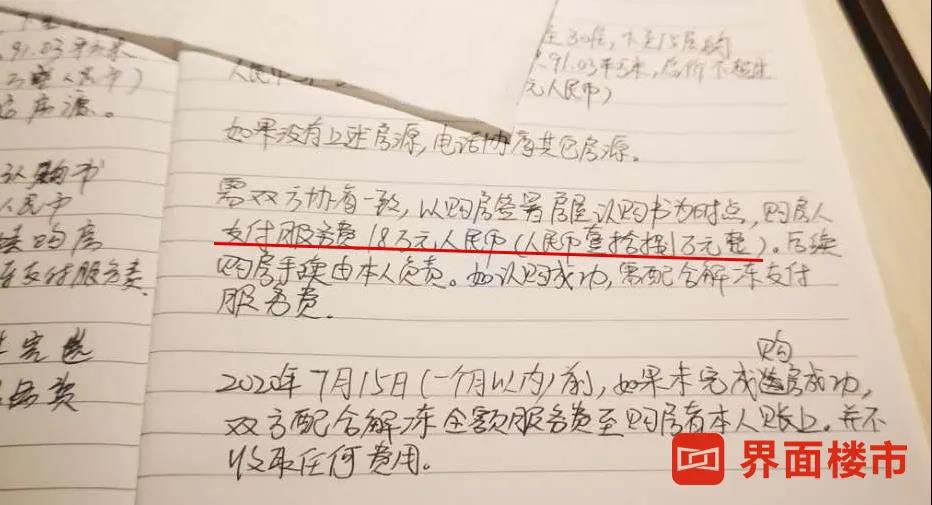 91.03平方米
万整人民币)
房源。
认购书
人民币
购房
支付服务费
人民币
至30层,下至15层的
91.03平方米,总价不超过
元人民币)
如果没有上述房源,电话协商其它房源。
需双方协商一致,以购房签署房屋认购书为时点,购房人
支付服务费18万元人民币(人民币壹拾捌万元整)。后续
购房手续由本人负责。如认购成功,需配合解冻支付
服务费。
购
2020年7月15日(一个月以内)前,如果未完成选房成功,
双方配合解冻全额服务费至购房者本人账上。并不
收取任何费用。
界面楼市